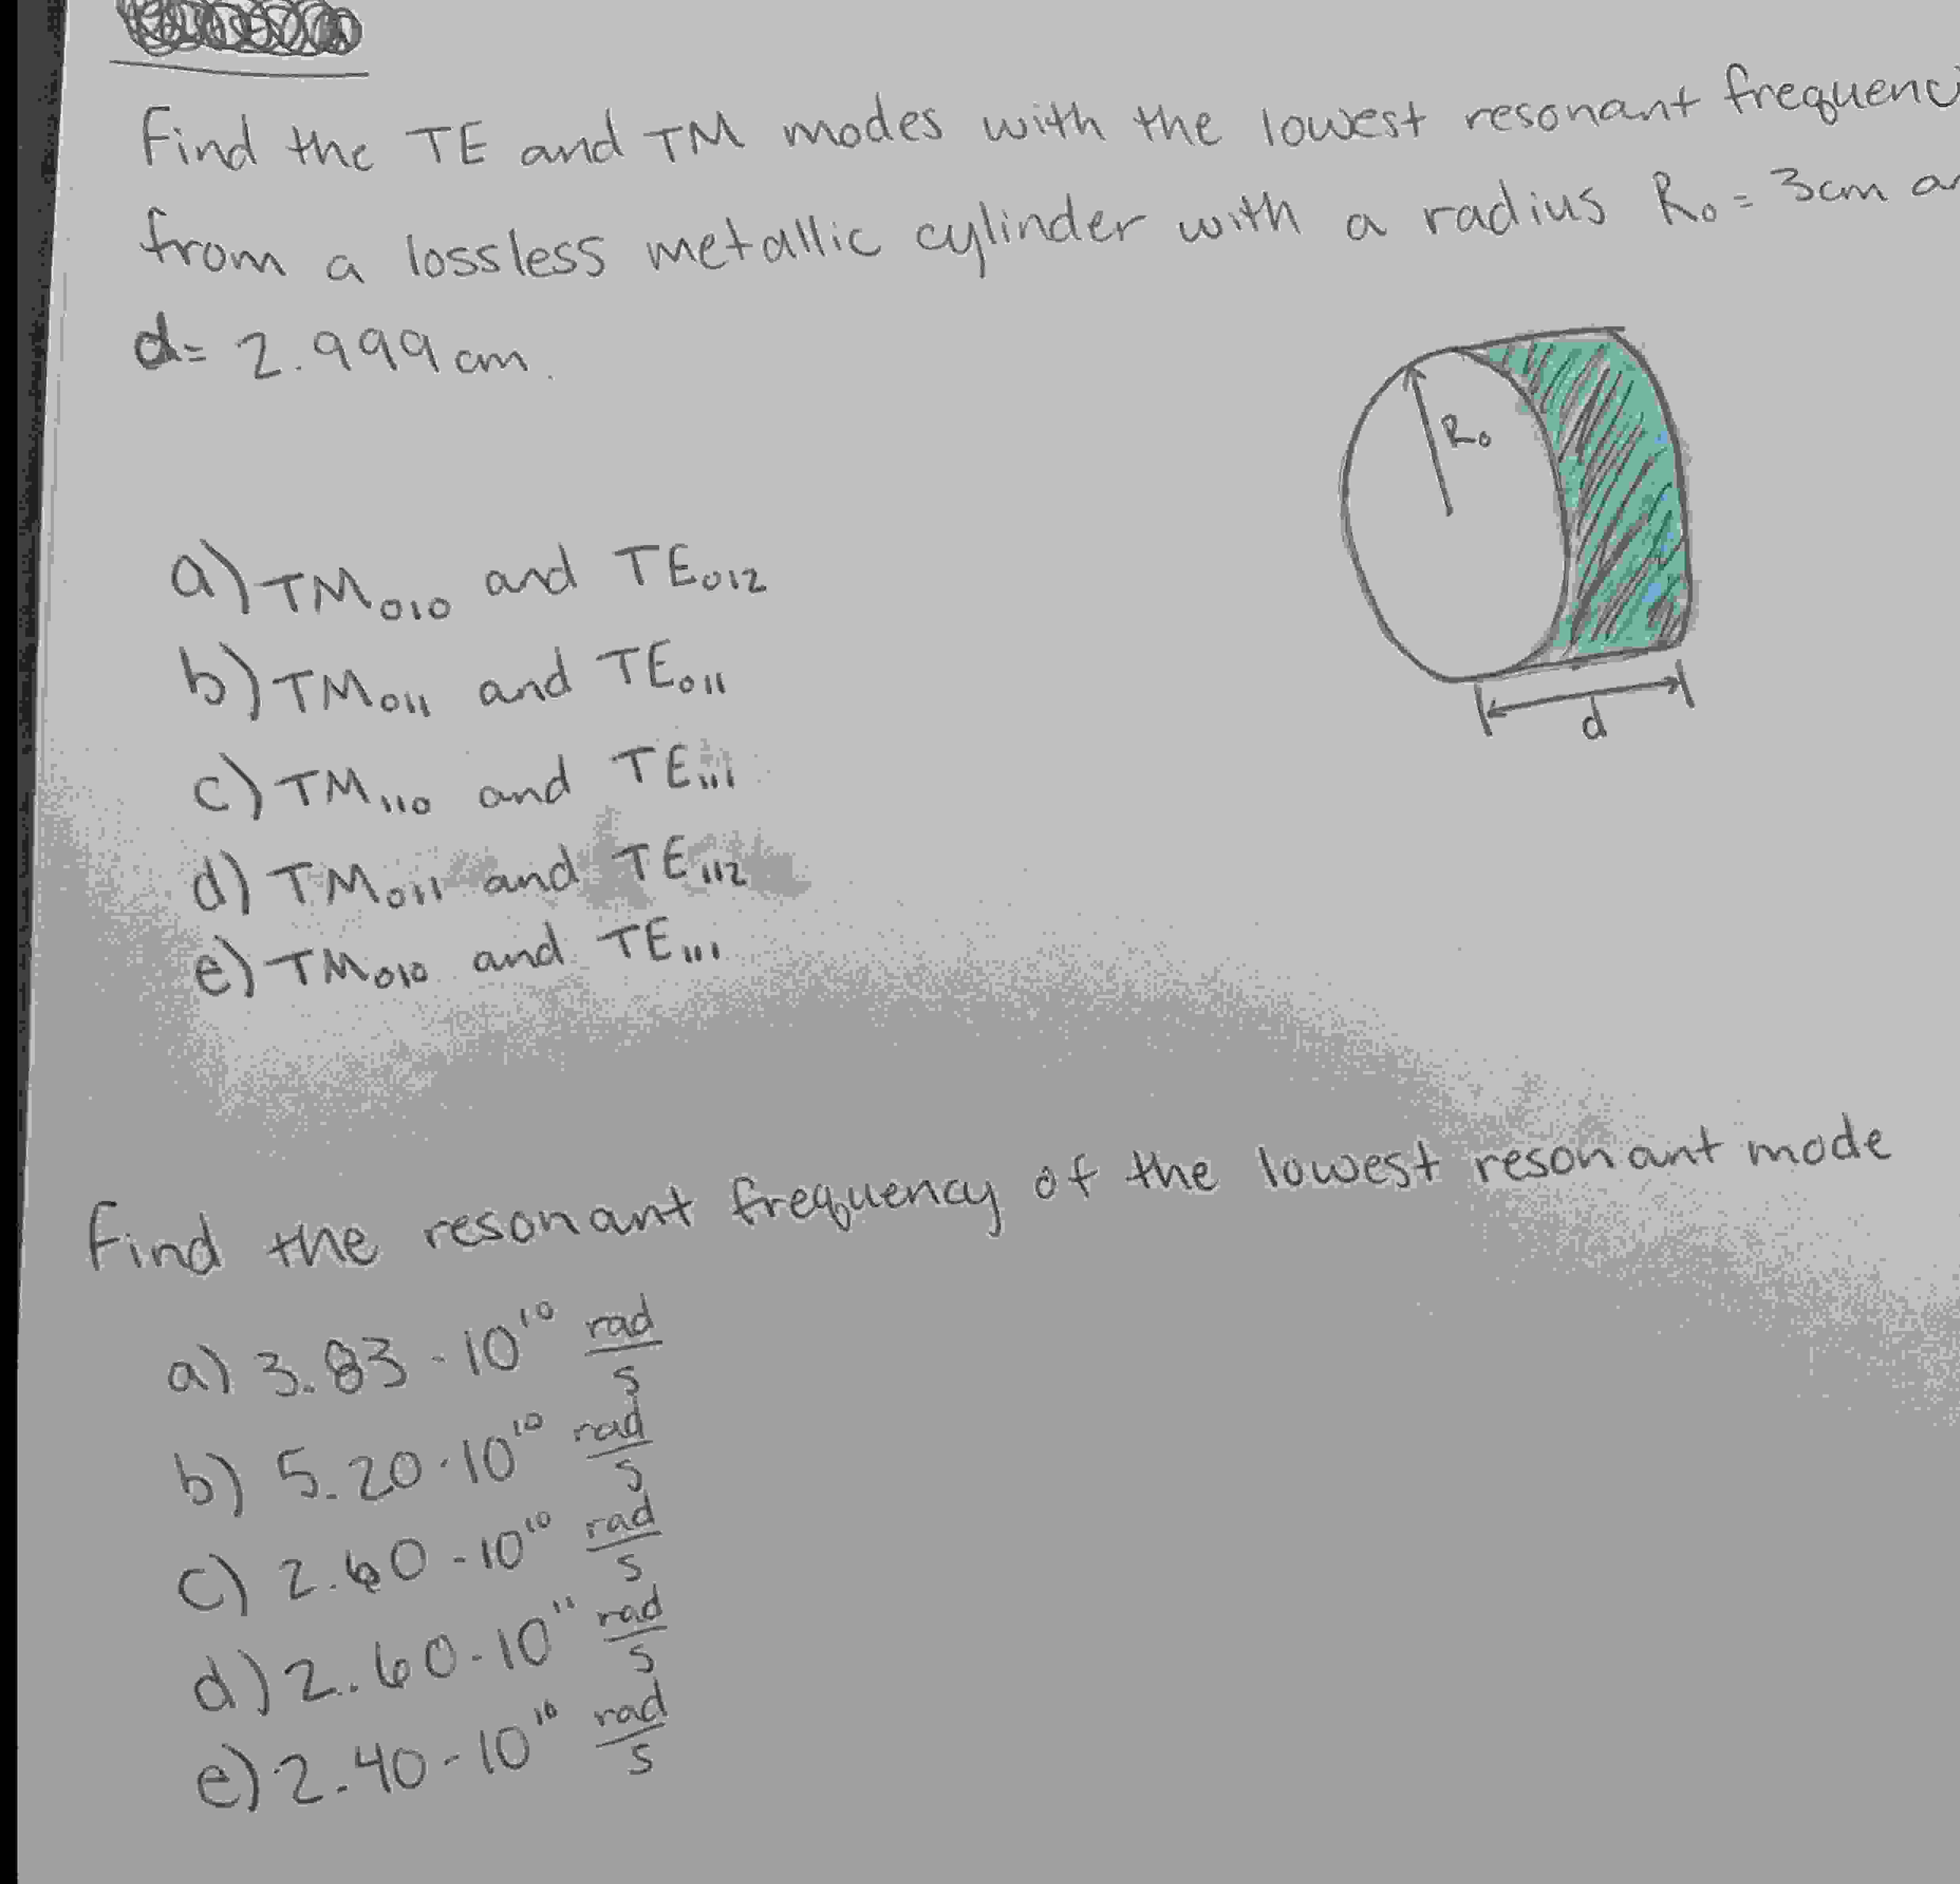 Find the TE and TM modes with the lowest resonant
from a lossless metallic cylinder with a radius R₀ = 3cm
d = 2.999 cm.
R₀
d
a) TM₀₁₀ and TE₀₁₂
b) TM₀₁₁ and TE₀₁₁
c) TM₁₁₀ and TE₁₁₁
d) TM₀₁₁ and TE₁₁₂
e) TM₀₁₀ and TE₁₁₁
Find the resonant frequency of the lowest resonant mode
a) 3.83 · 10¹⁰ rad/s
b) 5.20 · 10¹⁰ rad/s
c) 2.60 · 10¹⁰ rad/s
d) 2.60 · 10¹¹ rad/s
e) 2.40 · 10¹⁰ rad/s